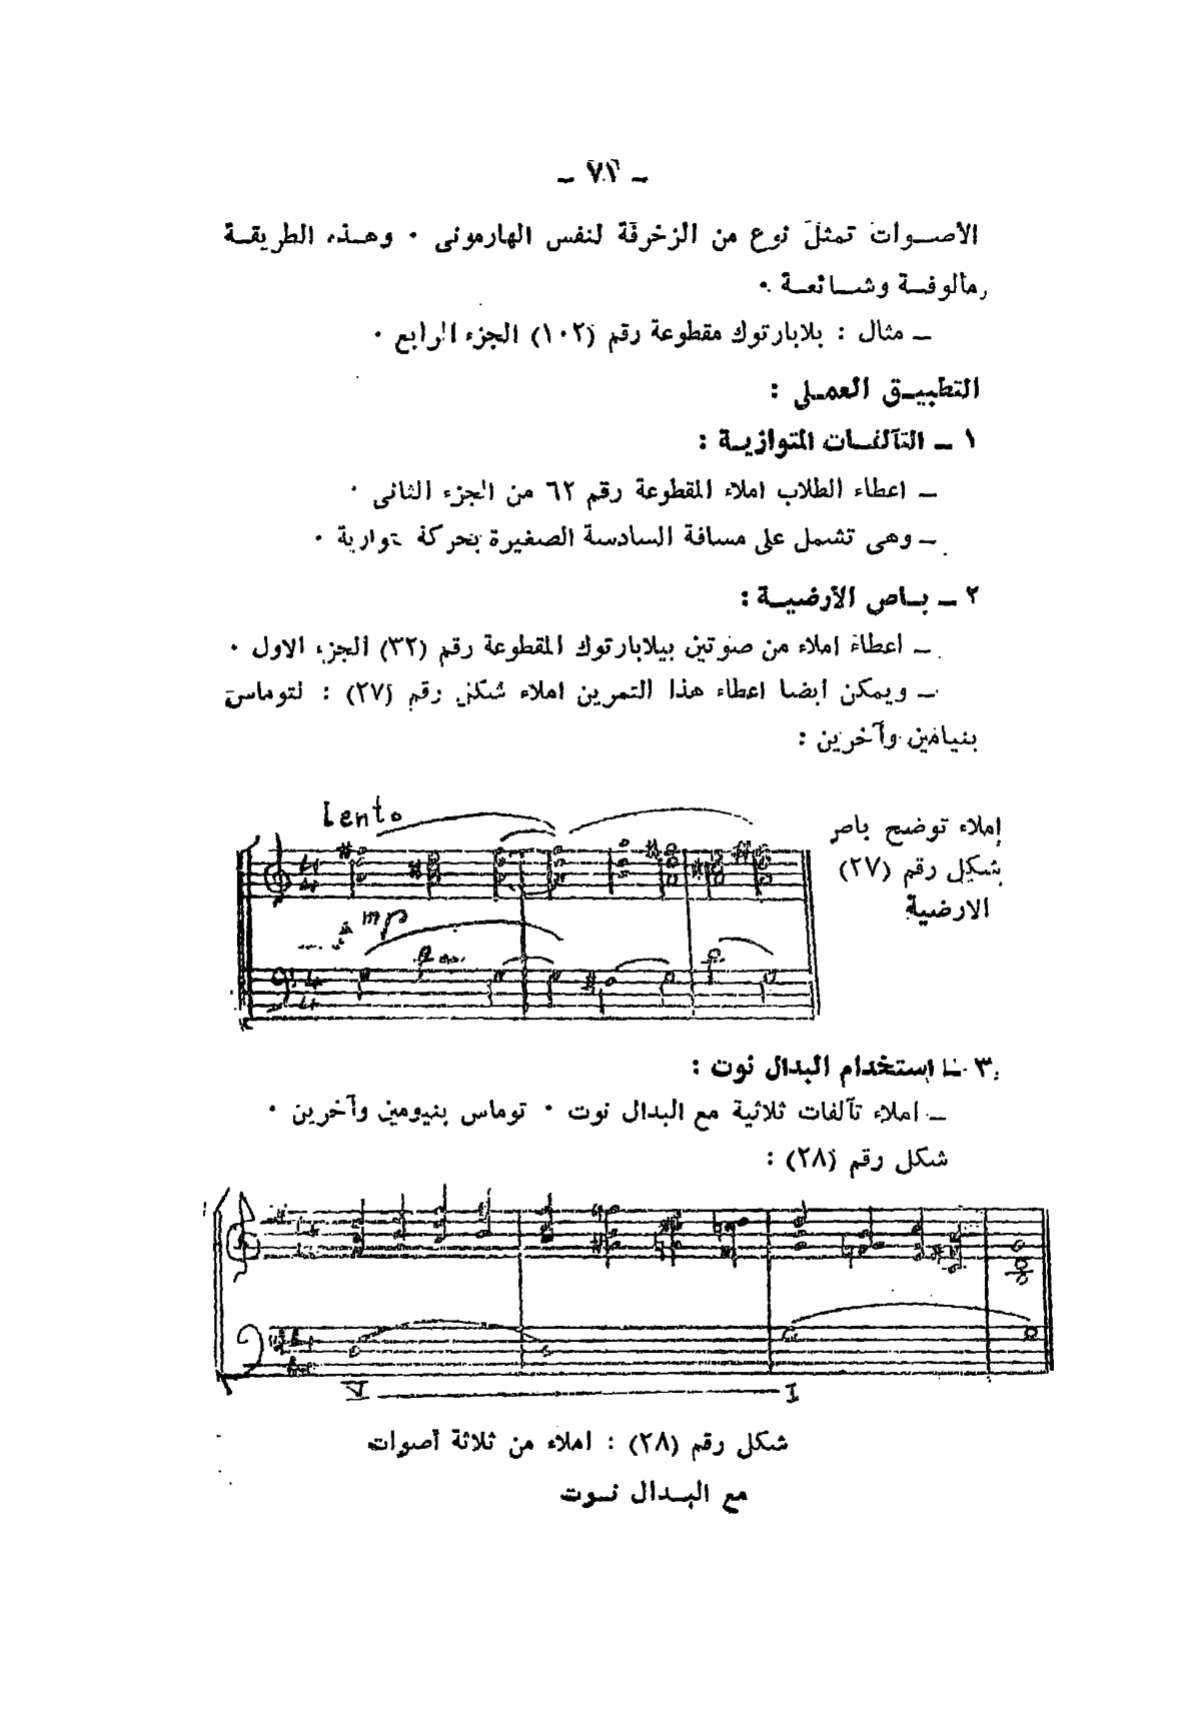 ـ ٧١ ـ
الأصــوات تمثل نوع من الزخرفة لنفس الهارمونى ٠ وهــذه الطريقــة
مألوفــة وشــائعــة ٠
ـ مثال : بلابارتوك مقطوعة رقم (١٠٢) الجزء الرابع ٠
التطبيــق العمــلى :
١ ـ التآلفــات المتوازيــة :
ـ اعطاء الطلاب املاء المقطوعة رقم ٦٢ من الجزء الثانى ٠
ـ وهى تشمل على مسافة السادسة الصغيرة بحركة توازية ٠
٢ ـ بــاص الأرضيــة :
ـ اعطاء املاء من صوتين بيلابارتوك المقطوعة رقم (٣٢) الجزء الاول ٠
ـ ويمكن أيضا اعطاء هذا التمرين املاء شكل رقم (٢٧) : لتوماس
بنيامين وآخرين :
Lento
إملاء توضح باص
شكل رقم (٢٧)
الارضية
mp
٣ ـ استخدام البدال نوت :
ـ املاء تآلفات ثلاثية مع البدال نوت ٠ توماس بنيومين وآخرين ٠
شكل رقم (٢٨) :
V I
شكل رقم (٢٨) : املاء من ثلاثة أصوات
مع البــدال نــوت